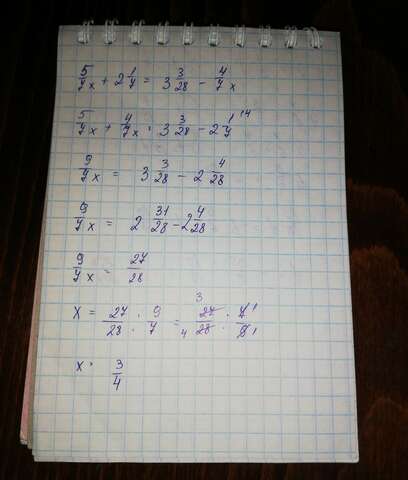 5/7 x + 2 1/7 = 3 3/28 - 4/7 x
5/7 x + 4/7 x = 3 3/28 - 2 1/7 \4
9/7 x = 3 3/28 - 2 4/28
9/7 x = 2 31/28 - 2 4/28
9/7 x = 27/28
x = 27/28 : 9/7 = 27 3/28 4 · 7 1/9 1
x = 3/4